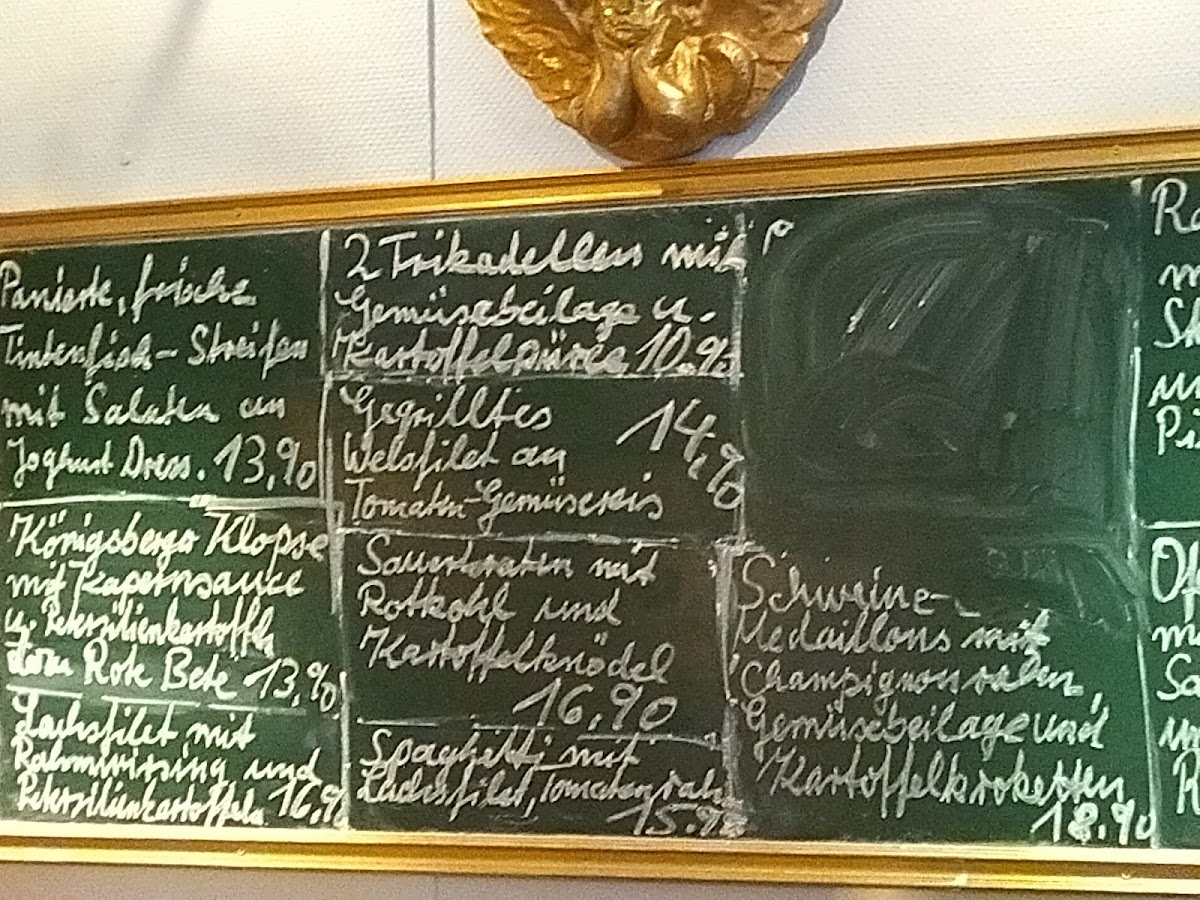 Panierte, frische
Tintenfisch-Streifen
mit Salaten an
Joghurt Dress. 13,90
Königsberger Klopse
mit Kapernsauce
u. Petersilienkartoffeln
Rote Bete 13,90
Lachsfilet mit
Rahmwirsing und
Petersilienkartoffeln 16,90
2 Frikadellen mit
Gemüsebeilage u.
Kartoffelpüree 10.90
Gegrilltes
Welsfilet an 14,90
Tomaten-Gemüsereis
Sauerbraten mit
Rotkohl und
Kartoffelknödel
16,90
Spaghetti mit
Lachsfilet, Tomatenrahm
15.90
Schweine-
Medaillons mit
Champignonrahm,
Gemüsebeilage und
Kartoffelkroketten
18.90